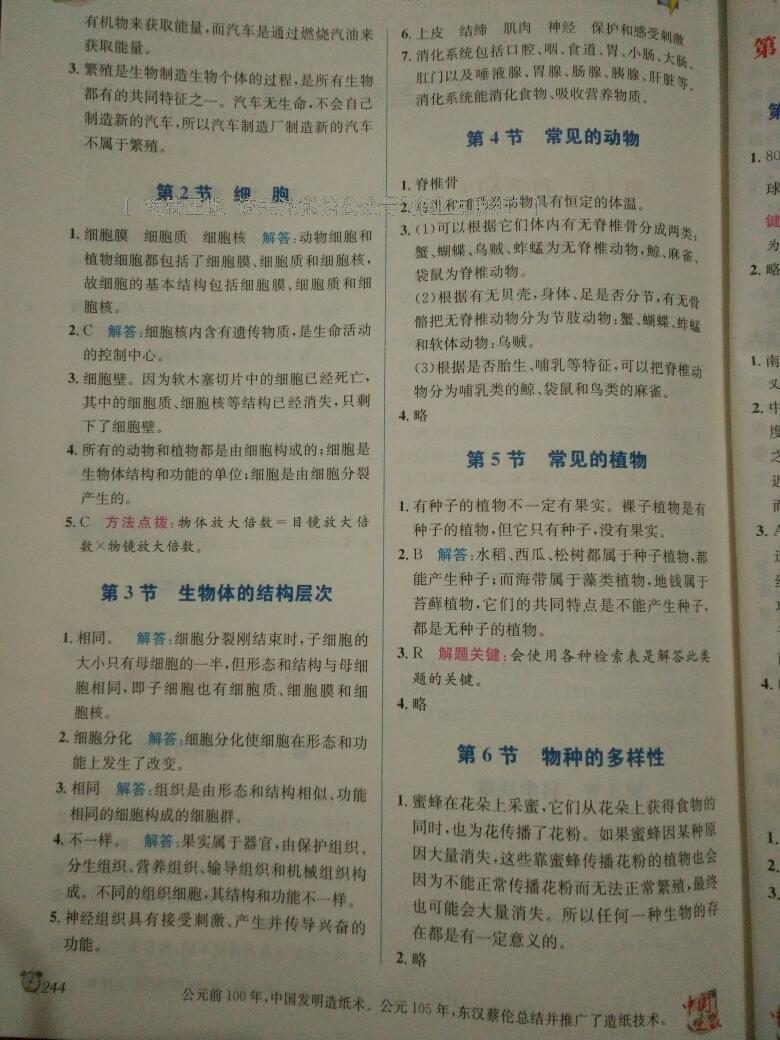 有机物来获取能量,而汽车是通过燃烧汽油来
获取能量。
3. 繁殖是生物制造生物个体的过程,是所有生物
都有的共同特征之一。汽车无生命,不会自己
制造新的汽车,所以汽车制造厂制造新的汽车
不属于繁殖。
第2节 细 胞
1. 细胞膜 细胞质 细胞核 解答:动物细胞和
植物细胞都包括了细胞膜、细胞质和细胞核,
故细胞的基本结构包括细胞膜、细胞质和细
胞核。
2. C 解答:细胞核内含有遗传物质,是生命活动
的控制中心。
3. 细胞壁。因为软木塞切片中的细胞已经死亡,
其中的细胞质、细胞核等结构已经消失,只剩
下了细胞壁。
4. 所有的动物和植物都是由细胞构成的;细胞是
生物体结构和功能的单位;细胞是由细胞分裂
产生的。
5. C 方法点拨:物体放大倍数=目镜放大倍
数×物镜放大倍数。
第3节 生物体的结构层次
1. 相同。 解答:细胞分裂刚结束时,子细胞的
大小只有母细胞的一半,但形态和结构与母细
胞相同,即子细胞也有细胞质、细胞膜和细
胞核。
2. 细胞分化 解答:细胞分化使细胞在形态和功
能上发生了改变。
3. 相同 解答:组织是由形态和结构相似、功能
相同的细胞构成的细胞群。
4. 不一样。 解答:果实属于器官,由保护组织、
分生组织、营养组织、输导组织和机械组织构
成。不同的组织细胞,其结构和功能不一样。
5. 神经组织具有接受刺激、产生并传导兴奋的
功能。
6. 上皮 结缔 肌肉 神经 保护和感受刺激
7. 消化系统包括口腔、咽、食道、胃、小肠、大肠、
肛门以及唾液腺、胃腺、肠腺、胰腺、肝脏等。
消化系统能消化食物、吸收营养物质。
第4节 常见的动物
1. 脊椎骨
2. 动物具有恒定的体温。
3. (1)可以根据它们体内有无脊椎骨分成两类:
蟹、蝴蝶、乌贼、蚱蜢为无脊椎动物,鲸、麻雀、
袋鼠为脊椎动物。
(2)根据有无贝壳,身体、足是否分节,有无骨
骼把无脊椎动物分为节肢动物:蟹、蝴蝶、蚱蜢
和软体动物:乌贼。
(3)根据是否胎生、哺乳等特征,可以把脊椎动
物分为哺乳类的鲸、袋鼠和鸟类的麻雀。
4. 略
第5节 常见的植物
1. 有种子的植物不一定有果实。裸子植物是有
种子的植物,但它只有种子,没有果实。
2. B 解答:水稻、西瓜、松树都属于种子植物,都
能产生种子;而海带属于藻类植物,地钱属于
苔藓植物,它们的共同特点是不能产生种子,
都是无种子的植物。
3. R 解题关键:会使用各种检索表是解答此类
题的关键。
4. 略
第6节 物种的多样性
1. 蜜蜂在花朵上采蜜,它们从花朵上获得食物的
同时,也为花传播了花粉。如果蜜蜂因某种原
因大量消失,这些靠蜜蜂传播花粉的植物也会
因为不能正常传播花粉而无法正常繁殖,最终
也可能会大量消失。所以任何一种生物的存
在都是有一定意义的。
2. 略
244
公元前100年,中国发明造纸术。公元105年,东汉蔡伦总结并推广了造纸技术。
第
第
1. 80
球
键
为
2. 略
1. 南
义
2. 中
度
之
近
而
3. A
4.
1.
2.
3.